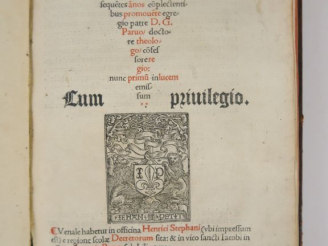 sequētes ānos cōplectenti
bus promouēte egre
gio patre D. G.
Paruo/ docto
re theolo
go: cōfes
sore re
gio:
nunc primū in lucem
emis
sum
Cum priuilegio.
I P
IEHAN PETIT
Venale habetur in officina Henrici Stephani (vbi impressum
est) e regione scolæ Decretorum sita: & in vico sancti Iacobi in